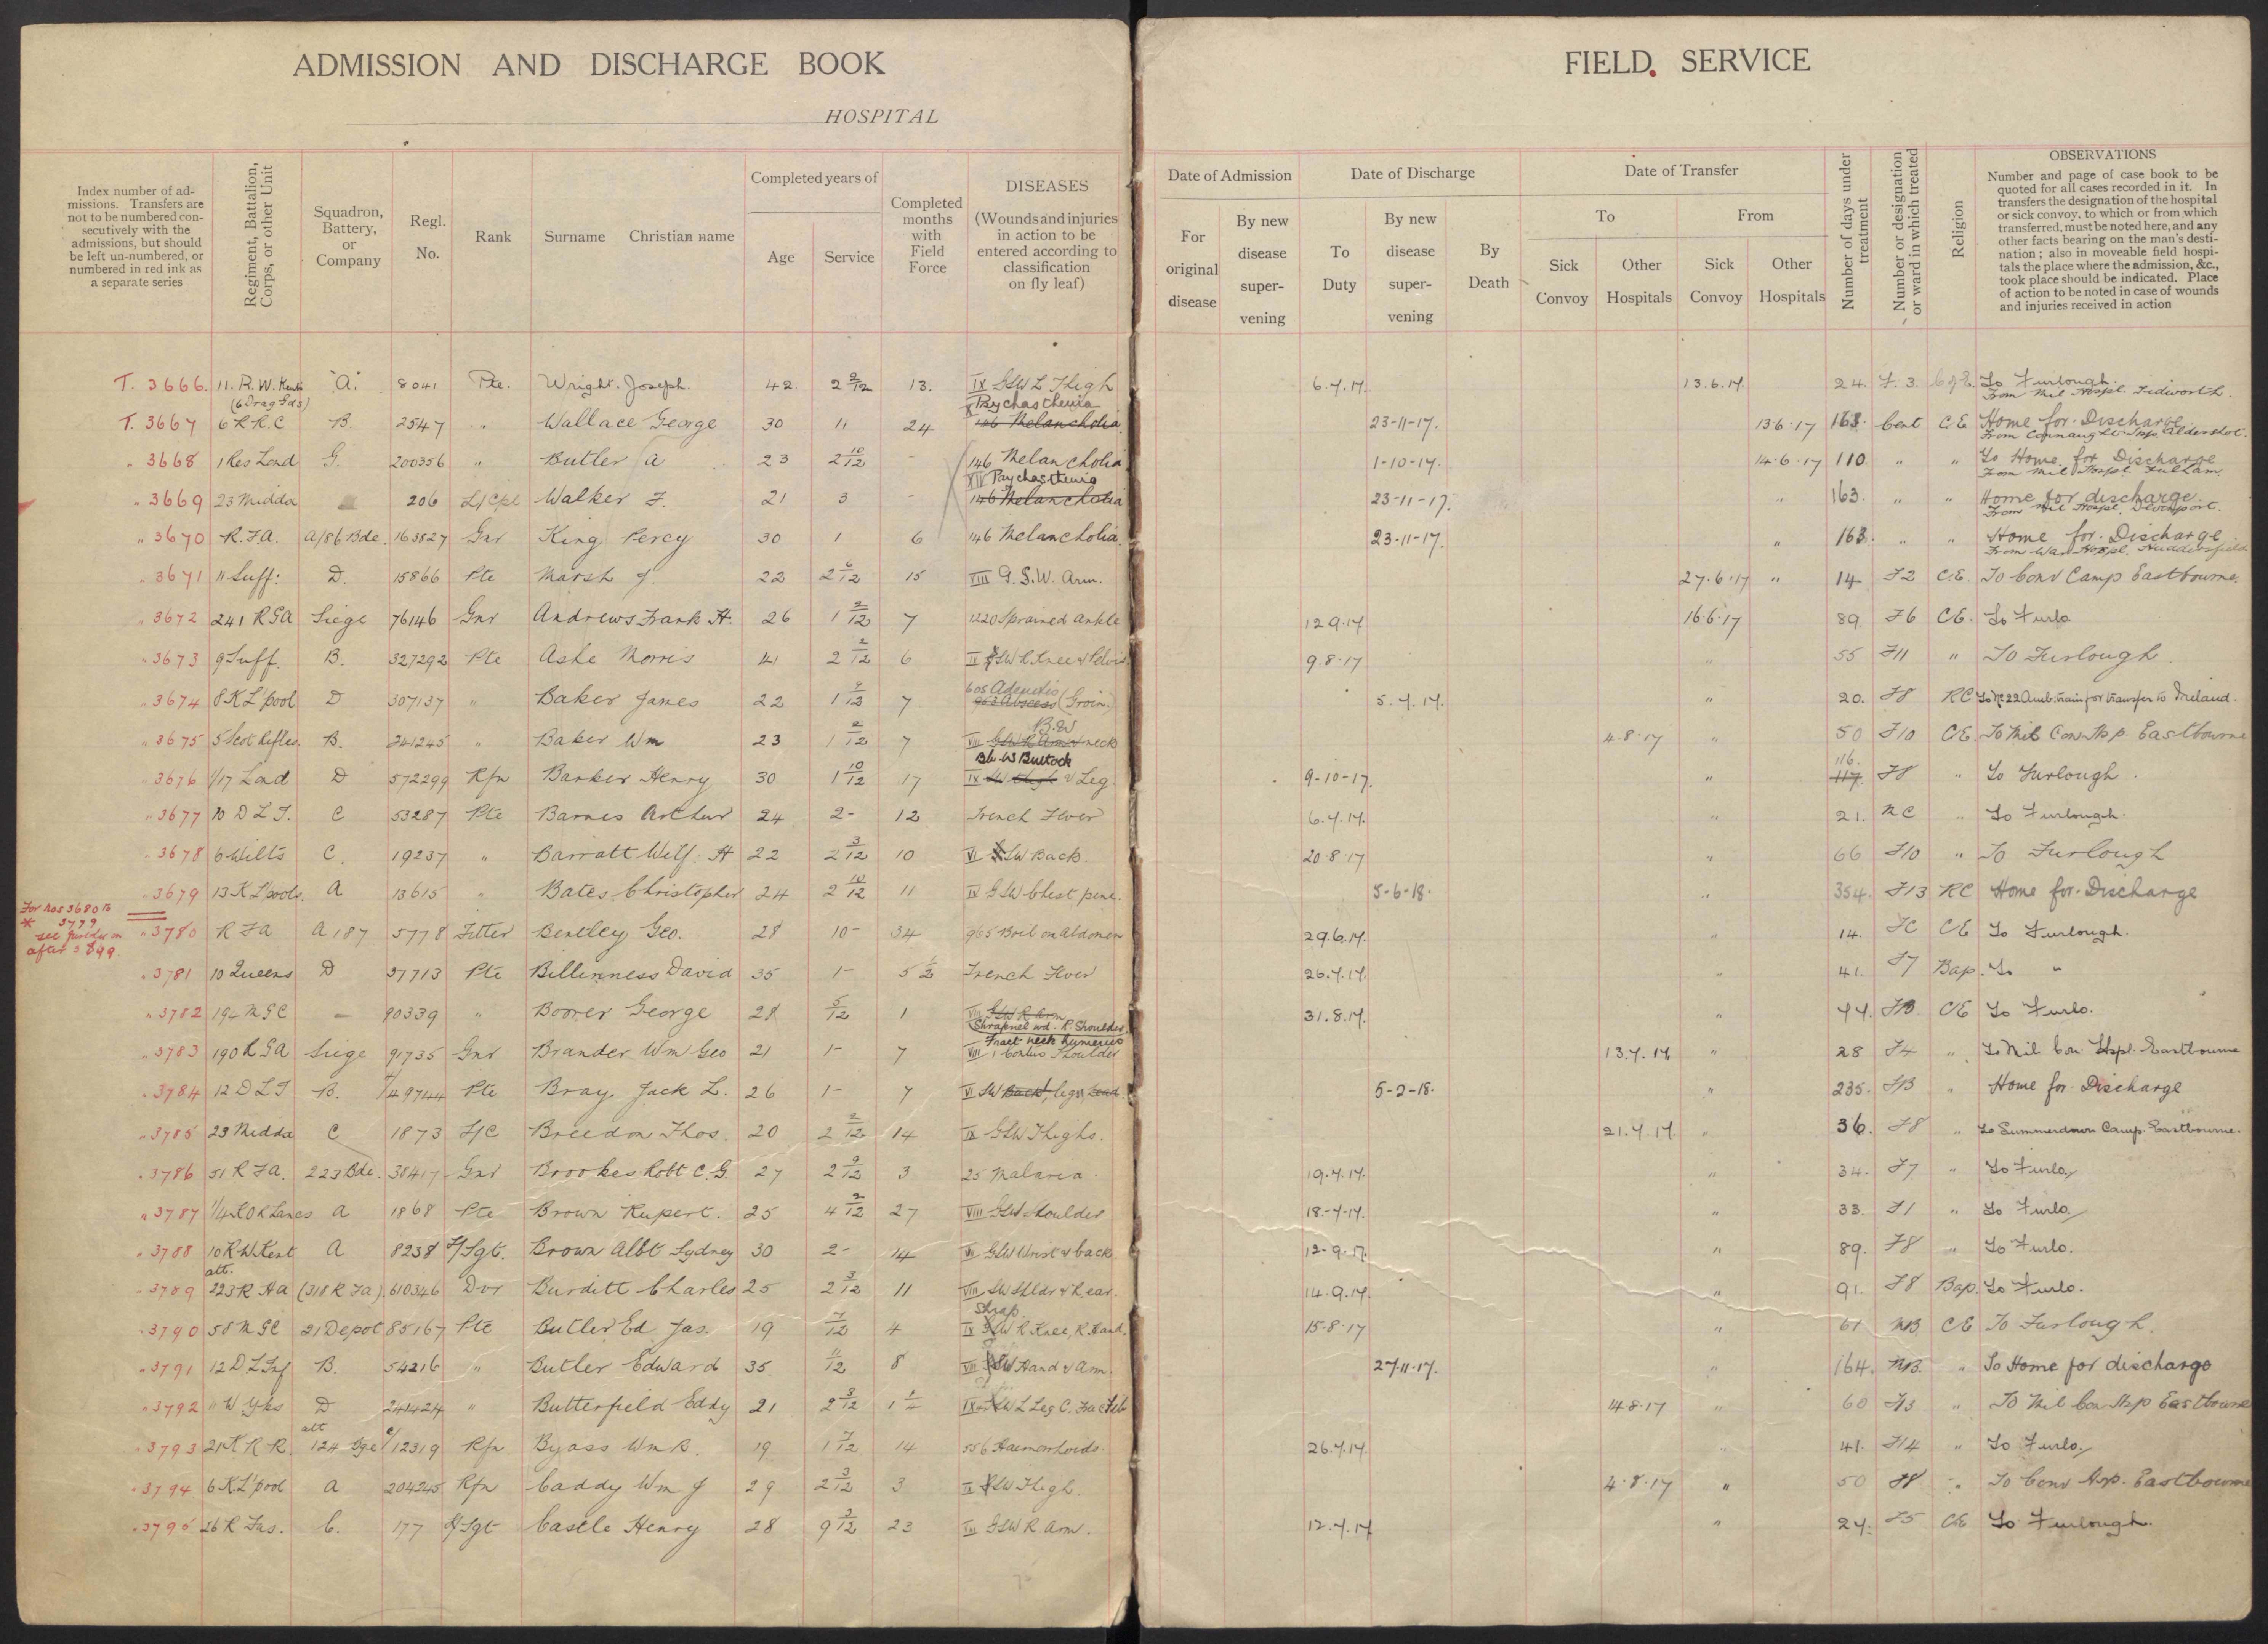 ADMISSION AND DISCHARGE BOOK
HOSPITAL
FIELD SERVICE
Index number of admissions. Transfers are not to be numbered consecutively with the admissions, but should be left un-numbered, or numbered in red ink as a separate series
Regiment, Battalion, Corps, or other Unit
Squadron, Battery, or Company
Regl. No.
Rank
Surname Christian name
Completed years of
Age
Service
Completed months with Field Force
DISEASES
(Wounds and injuries in action to be entered according to classification on fly leaf)
Date of Admission
For original disease
By new disease supervening
Date of Discharge
To Duty
By new disease supervening
By Death
Date of Transfer
To
From
Sick Convoy
Other Hospitals
Sick Convoy
Other Hospitals
Number of days under treatment
Number or designation or ward in which treated
Religion
OBSERVATIONS
Number and page of case book to be quoted for all cases recorded in it. In transfers the designation of the hospital or sick convoy, to which or from which transferred, must be noted here, and any other facts bearing on the man's destination; also in moveable field hospitals the place where the admission, &c., took place should be indicated. Place of action to be noted in case of wounds and injuries received in action
T. 3666. 11. R. W. Kents (6 Drag Gds) "A." 8041 Pte. Wright. Joseph. 42 2 9/12 13. IX GSW L Thigh 6.7.17. 13.6.17. 24. F. 3. C of E. To Furlough. From Mil Hospl. Tidworth.
T. 3667 6 K R C B. 2547 " Wallace George 30 11 24 Psychasthenia 146 Melancholia 23-11-17. 13·6·17 163. Cent C.E. Home for Discharge From Connaught Hosp. Aldershot.
" 3668 1 Res Lond G. 200356 " Butler A 23 2 10/12 - 146 Melancholia 1-10-17. 14·6·17 110 " " To Home for Discharge From Mil Hospl. Fulham
" 3669 23 Middx 206 L/Cpl Walker F. 21 3 - XIV Psychasthenia 146 Melancholia 23-11-17. " 163. " " Home for discharge. From Mil Hospl. Devonport.
" 3670 R.F.A. A/86 Bde. 163827 Gnr King Percy 30 1 6 146 Melancholia. 23-11-17. " 163. " " Home for Discharge From War Hospl. Huddersfield
" 3671 11 Suff: D. 15866 Pte Marsh J. 22 2 6/12 15 VIII G.S.W. Arm. 27·6·17 " 14 F2 C.E. To Conv Camp Eastbourne.
" 3672 241 RGA Siege 76146 Gnr Andrews Frank H. 26 1 2/12 7 1220 Sprained Ankle 12.9.17 16·6·17 89. F6 CE. To Furlo
" 3673 9 Suff. B. 327292 Pte Ashe Morris 41 2 2/12 6 IX GSW R. Knee & Pelvis 9.8.17 " 55 F11 " To Furlough.
" 3674 8 K L'pool D 307137 " Baker James 22 1 9/12 7 605 Adenitis 963 Abscess (Groin.) 5.7.17. " 20. F8 RC To No 22 Amb. train for transfer to Ireland.
" 3675 5 Scot Rifles. B. 241245 " Baker Wm 23 1 2/12 7 B.W VIII GSW R Arm & neck 4.8.17 " 50 F10 CE. To Mil Con Hsp. Eastbourne
" 3676 1/17 Lond D 572299 Rfn Barker Henry 30 1 10/12 17 Bb. W Buttock IX SW thigh & Leg 9-10-17. " 116. 117 F8 " To Furlough.
" 3677 20 D L I. C 53287 Pte Barnes Arthur 24 2- 12 Trench Fever 6.7.17. " 21. NC " To Furlough.
" 3678 6 Wilts C. 19237 " Barratt Wilf. H 22 2 3/12 10 VI GSW Back. 20.8.17 " 66 F10 " To Furlough
" 3679 13 K L'pools. A 13615 " Bates Christopher 24 2 10/12 11 IV GSW Chest pene. 5-6-18. " 354. F13 RC Home for Discharge
For Nos 3680 to * 3779 see after 3899.
" 3780 R F A A 187 5778 Fitter Bentley Geo. 28 10- 34 965 Boil on Abdomen 29.6.17. " 14. FC CE To Furlough.
" 3781 10 Queens D 37713 Pte Billenness David 35 1- 5 1/2 Trench Fever 26.7.17. " 41. F7 Bap. To "
" 3782 194 M G C - 90339 " Boorer George 28 5/12 1 VIII GSW R Arm Shrapnel wd. R. Shoulder. 31.8.17. " 77. CE To Furlo.
" 3783 190 R G A Siege 91735 Gnr Brander Wm Geo 21 1- 7 Fract neck humerus VIII 1 Contus Shoulder 13.7.17. " 28 F4 " To Mil Con Hspl. Eastbourne
" 3784 12 D L I B. 49744 Pte Bray Jack L. 26 1- 7 VI SW Back, legs & head. 5-2-18. " 235. " Home for Discharge
" 3785 23 Middx C 1873 L/C Breedon Thos. 20 2 2/12 14 IX GSW Thighs. 21.7.17. " 36. F8 " To Summerdown Camp. Eastbourne.
" 3786 51 R F A. 223 Bde. 38417 Gnr Brookes Robt C. G. 27 2 9/12 3 25 Malaria. 19.7.17. " 34. F7 " To Furlo
" 3787 1/4 R O R Lancs A 1868 Pte Brown Rupert. 25 4 2/12 27 VIII GSW Shoulder 18.7.17. " 33. F1 " To Furlo.
" 3788 10 R W. Kent A 8238 L/Sgt. Brown Albt Sydney 30 2- 14 VI GSW Wrist & back. 12.9.17. " 89. F8 " To Furlo.
" 3789 att. 223 R H A (318 R F A) 610346 Dvr Burditt Charles 25 2 3/12 11 VIII SW Shldr & R. ear. 14.9.17. " 91. F8 Bap. To Furlo.
" 3790 58 M G C 21 Depot 85167 Pte Butler Ed. Jas. 19 7/12 4 Shrap. IX GSW R Knee, R. Hand. 15·8·17 " 61 CE To Furlough.
" 3791 12 D L Inf B. 54216 " Butler Edward 35 11/12 8 VIII GSW Hand & Arm. 27.11.17. " 164. " To Home for discharge
" 3792 11 W Yks D 241424 " Butterfield Eddy 21 2 3/12 IX GSW L Leg C. Frac Fib 14.8.17 " 60 F13 " To Mil Con Hsp Eastbourne
" 3793 21 K R R. att 124 Bge C/12319 Rfn Byass Wm R. 19 1 7/12 14 556 Haemorrhoids 26.7.17. " 41. F14 " To Furlo.
" 3794 6 K L'pool A 204245 Rfn Caddy Wm J 29 2 3/12 3 IX GSW Thigh. 4·8·17 " 50 F8 " To Conv Hsp. Eastbourne
" 3795 26 R Fus. C. 177 L/Sgt Castle Henry 28 9 3/12 23 VIII GSW R Arm. 12.7.17 " 27. F5 CE To Furlough.